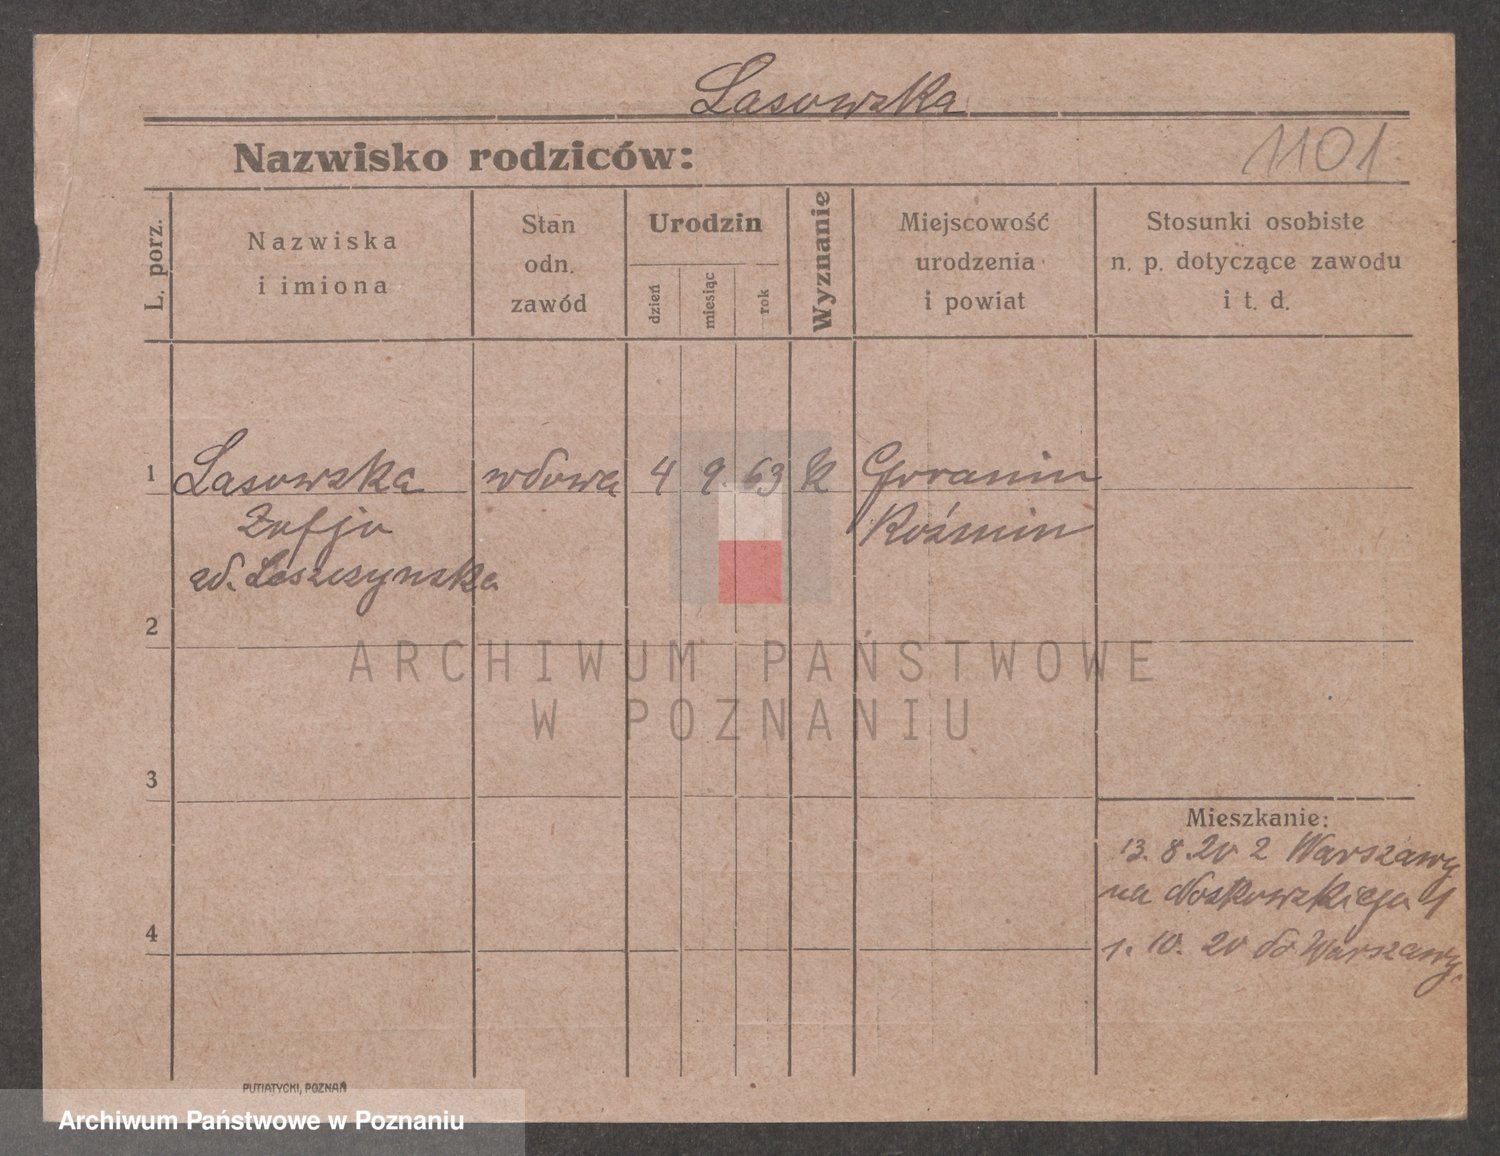 Lasowska
Nazwisko rodziców:
1101
L. porz.
Nazwiska
i imiona
Stan
odn.
zawód
Urodzin
dzień
miesiąc
rok
Wyznanie
Miejscowość
urodzenia
i powiat
Stosunki osobiste
n. p. dotyczące zawodu
i t. d.
1 Lasowska wdowa 4 9. 63 k Goranin
Zofja Koźmin
zd. Leszczynska
2
ARCHIWUM PAŃSTWOWE
W POZNANIU
3
Mieszkanie:
13. 8. 20 z Warszawy
na Noskowskiego 1
4
1. 10. 20 do Warszawy.
PUTIATYCKI, POZNAŃ
Archiwum Państwowe w Poznaniu